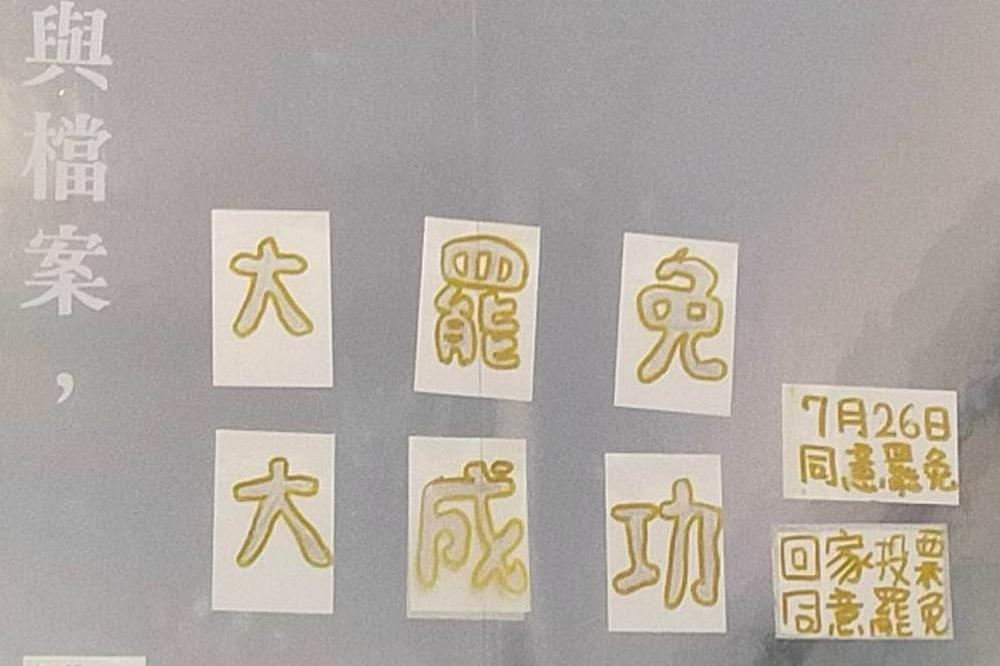 與檔案，
大罷免
大成功
7月26日
同意罷免
回家投票
同意罷免